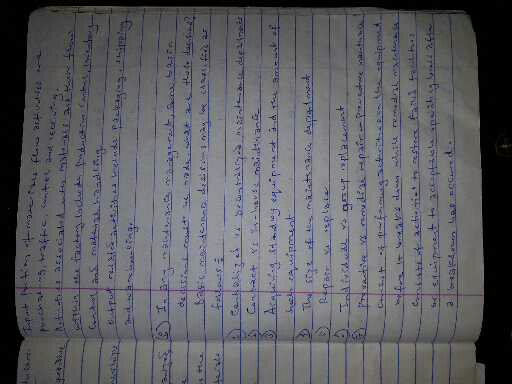 Input portion of materials flow activities are
purchasing, traffic, control and receiving.
Activities associated with materials and their flow
within the factory include production control, inventory
control and materials handling
output related activities include packaging, shipping
and warehousing.
In any maintenance management, some basic
decisions must be made what are those decisions?
Basic maintenance decisions may be classified as
follows:
Centralized vs decentralized maintenance department
Contract vs in-house maintenance
Acquiring standby equipment and the amount of
back equipment
The size of the maintenance department
Repair vs replace
Individual vs group replacement
Preventive vs remedial repair - preventive maintenance
consist of performing activities on the equipment
before it breaks down while remedial maintenance
consists of activities to restore failed facilities
or equipment to acceptable operating level after
a breakdown has occurred.